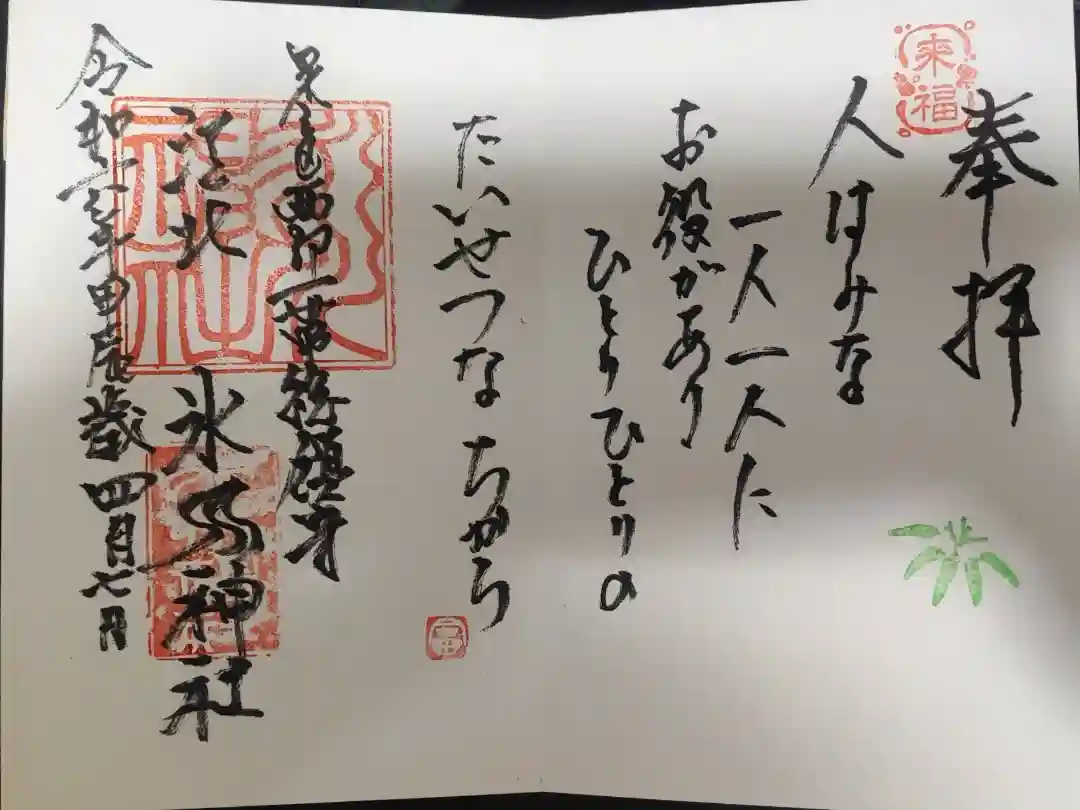 来福
奉拝
人はみな
一人一人に
お役があり
ひとりひとりの
たいせつな ちから
足立西部一帯総鎮守
江北 氷川神社
令和六年甲辰歳 四月七日